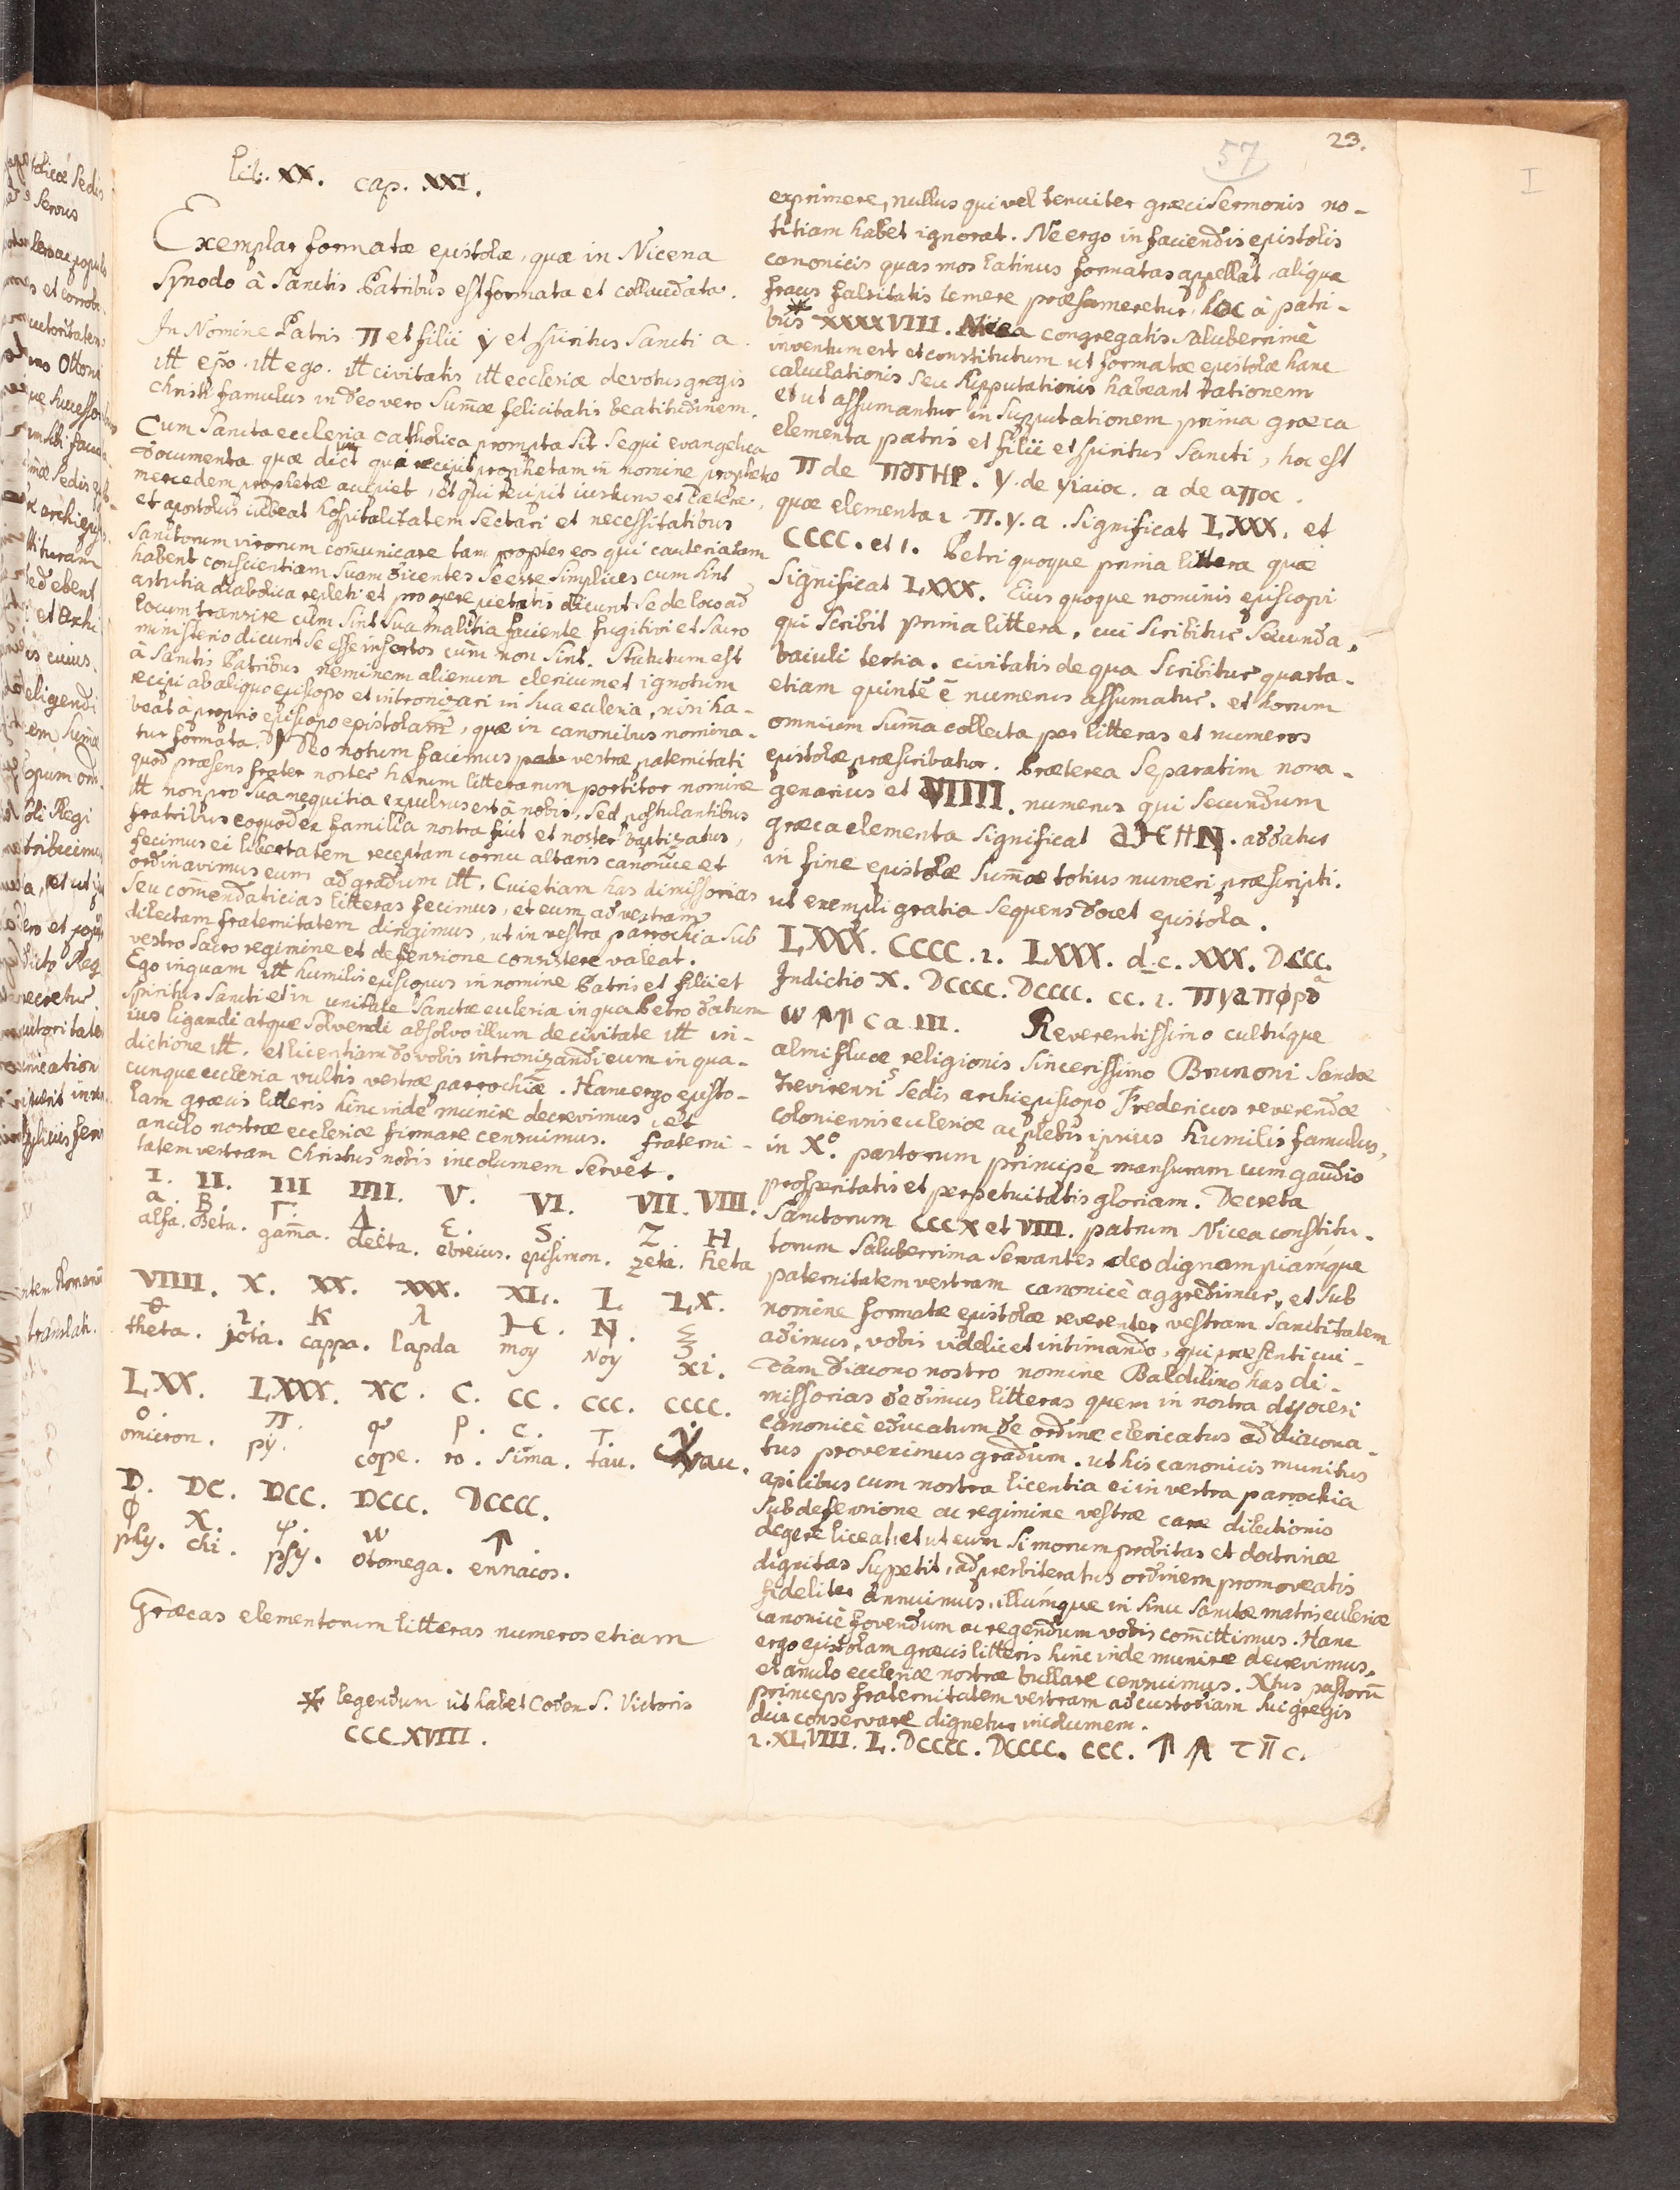 23.
57
I
lib. XX. cap. XXI.
Exemplar formatæ epistolæ, quæ in Nicena
Synodo à Sanctis Patribus est formata et collaudata.
In Nomine Patris π et filii y et spiritus Sancti a.
itt epo. itt ego. itt civitatis itt ecclesiæ devotus gregis
Christi famulus in deo vero Sum̄æ felicitatis beatitudinem.
Cum Sancta ecclesia catholica prompta sit sequi evangelica
documenta quæ dicit qui recipit prophetam in nomine prophetæ
mercedem prophetæ accipiet, et qui recipit iustum et cætera.
et apostolus iubeat hospitalitatem sectari et necessitatibus
Sanctorum virorum com̄unicare tam propter eos qui cauteriatam
habent conscientiam suam dicentes se esse simplices cum sint
astutia diabolica repleti et pro opere pietatis dicunt se de loco ad
locum transire cùm sint sua malitia faciente fugitivi et sacro
ministerio dicunt se esse insertos cùm non sint. Statutum est
à Sanctis Patribus neminem alienum clericum et ignotum
recipi ab aliquo episcopo et intronizari in sua ecclesia, nisi ha-
beat à proprio episcopo epistolam, quæ in canonibus nomina-
tur formata. Deo notum facimus vestræ paternitati
quod præsens frater noster harum litterarum portitor nomine
itt non pro sua nequitia expulsus est à nobis, sed postulantibus
fratribus eoquod ex familia nostra fuit et noster baptizatus,
fecimus ei libertatem receptam cornu altaris canonice et
ordinavimus eum ad gradum itt. Cui etiam has dimissorias
seu com̄endaticias litteras fecimus, et eum ad vestram
dilectam fraternitatem dirigimus, ut in vestra parrochia sub
vestro sacro regimine et defensione consistere valeat.
Ego inquam itt humilis episcopus in nomine Patris et filii et
Spiritus Sancti et in unitate Sanctæ ecclesiæ in qua Petro datum
ius ligandi atque solvendi absolvo illum de civitate itt in-
dictione itt. et licentiam do vobis intronizandi eum in qua-
cunque ecclesia vultis vestræ parrochiæ. Hanc ergo episto-
lam græcis litteris hinc inde munire decrevimus, et
anulo nostræ ecclesiæ firmare censuimus. fraterni-
tatem vestram Christus nobis incolumem servet.
I. II. III IIII. V. VI. VII. VIII.
a. B. Γ. Δ. ε. S. Z. H
alfa. beta. gam̄a. delta. ebreius. episimon. zeta. heta
VIIII. X. XX. XXX. XL. L. LX.
θ ι. K λ M. N. ξ
theta. jota. cappa. lapda moy Noy xi.
LXX. LXXX. XC. C. CC. CCC. CCCC.
o. π. φ ρ. c. T. Y
omicron. py. cope. ro. sima. tau. Yau.
D. DC. DCC. DCCC. DCCCC.
φ X. ψ. w ↑.
phy. chi. psy. otomega. ennacos.
Græcas elementorum litteras numeros etiam
* legendum ut habet Codex S. Victoris
CCCXVIII.
exprimere, nullus qui vel tenuiter græci sermonis no-
titiam habet ignorat. Ne ergo in faciendis epistolis
canonicis quas mos latinus formatas appellat, aliqua
fraus falsitatis temere præsumeretur, hoc à patri-
bus * XXXXVIII. Nicea congregatis saluberrimè
inventum est et constitutum ut formatæ epistolæ hanc
calculationis seu supputationis habeant rationem
et ut assumantur in supputationem prima græca
elementa patris et filii et spiritus Sancti, hoc est
π de πατΗΡ. y. de yiaioc. a de aπoc.
quæ elementa π. y. a. significat LXXX. et
CCCC. et 1. Petri quoque prima littera quæ
significat LXXX. Eius quoque nominis episcopi
qui scribit prima littera, cui scribitur secunda,
baiuli tertia. civitatis de qua scribitur quarta.
etiam numerus assumatur. et horum
omnium sum̄a collecta per litteras et numeros
epistolæ præscribatur. Præterea separatim nona-
genarius et VIIII. numerus qui secundum
græca elementa significat aMHN. addatur
in fine epistolæ sum̄æ totius numeri præscripti.
ut exempli gratia sequens docet epistola.
LXXX. CCCC. 1. LXXX. d.c. XXX. DCCC.
Indictio X. DCCCC. DCCCC. CC. 1. πyaπφρ
W ca III. Reverentissimo cultúque
almifluæ religionis sincerissimo Brunoni Sanctæ
Trevirensis sedis archiepiscopo Fredericus reverendæ
coloniensis ecclesiæ ac plebis ipsius humilis famulus,
in Xo. pastorum principe mansuram cum gaudio
prosperitatis et perpetuitatis gloriam. Decreta
Sanctorum CCCX et VIII. patrum Nicea constitu-
torum saluberrima servantes deo dignam piámque
paternitatem vestram canonicè aggredimur, et sub
nomine formatæ epistolæ reverenter vestram sanctitatem
adimus, vobis videlicet intimando, qui præsenti cui-
dam diacono nostro nomine Baldilino has di-
missorias dedimus litteras quem in nostra dyocesi
canonicè educatum de ordine clericatus ad diacona-
tus proveximus gradum. ut his canonicis munitus
apicibus cum nostra licentia ei in vestra parrochia
sub defensione ac regimine vestræ caræ dilectionis
degere liceat, et ut eum si morum probitas et doctrinæ
dignitas suppetit, ad presbiteratus ordinem promoveatis
fideliter annuimus, illúmque in sinu sanctæ matris ecclesiæ
canonicè fovendum ac regendum vobis com̄ittimus. Hanc
ergo epistolam græcis litteris hinc inde munire decrevimus,
et anulo ecclesiæ nostræ bullare censuimus. Xtus pastorū
princeps fraternitatem vestram ad custodiam sui gregis
diu conservare dignetur incolumem.
1. XLVIII. L. DCCCC. DCCCC. CCC. ↑ ↑ τ π c.